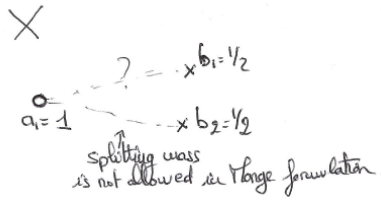 X
?
x b₁=1/2
a₁=1
x b₂=1/2
splitting mass
is not allowed in Monge formulation